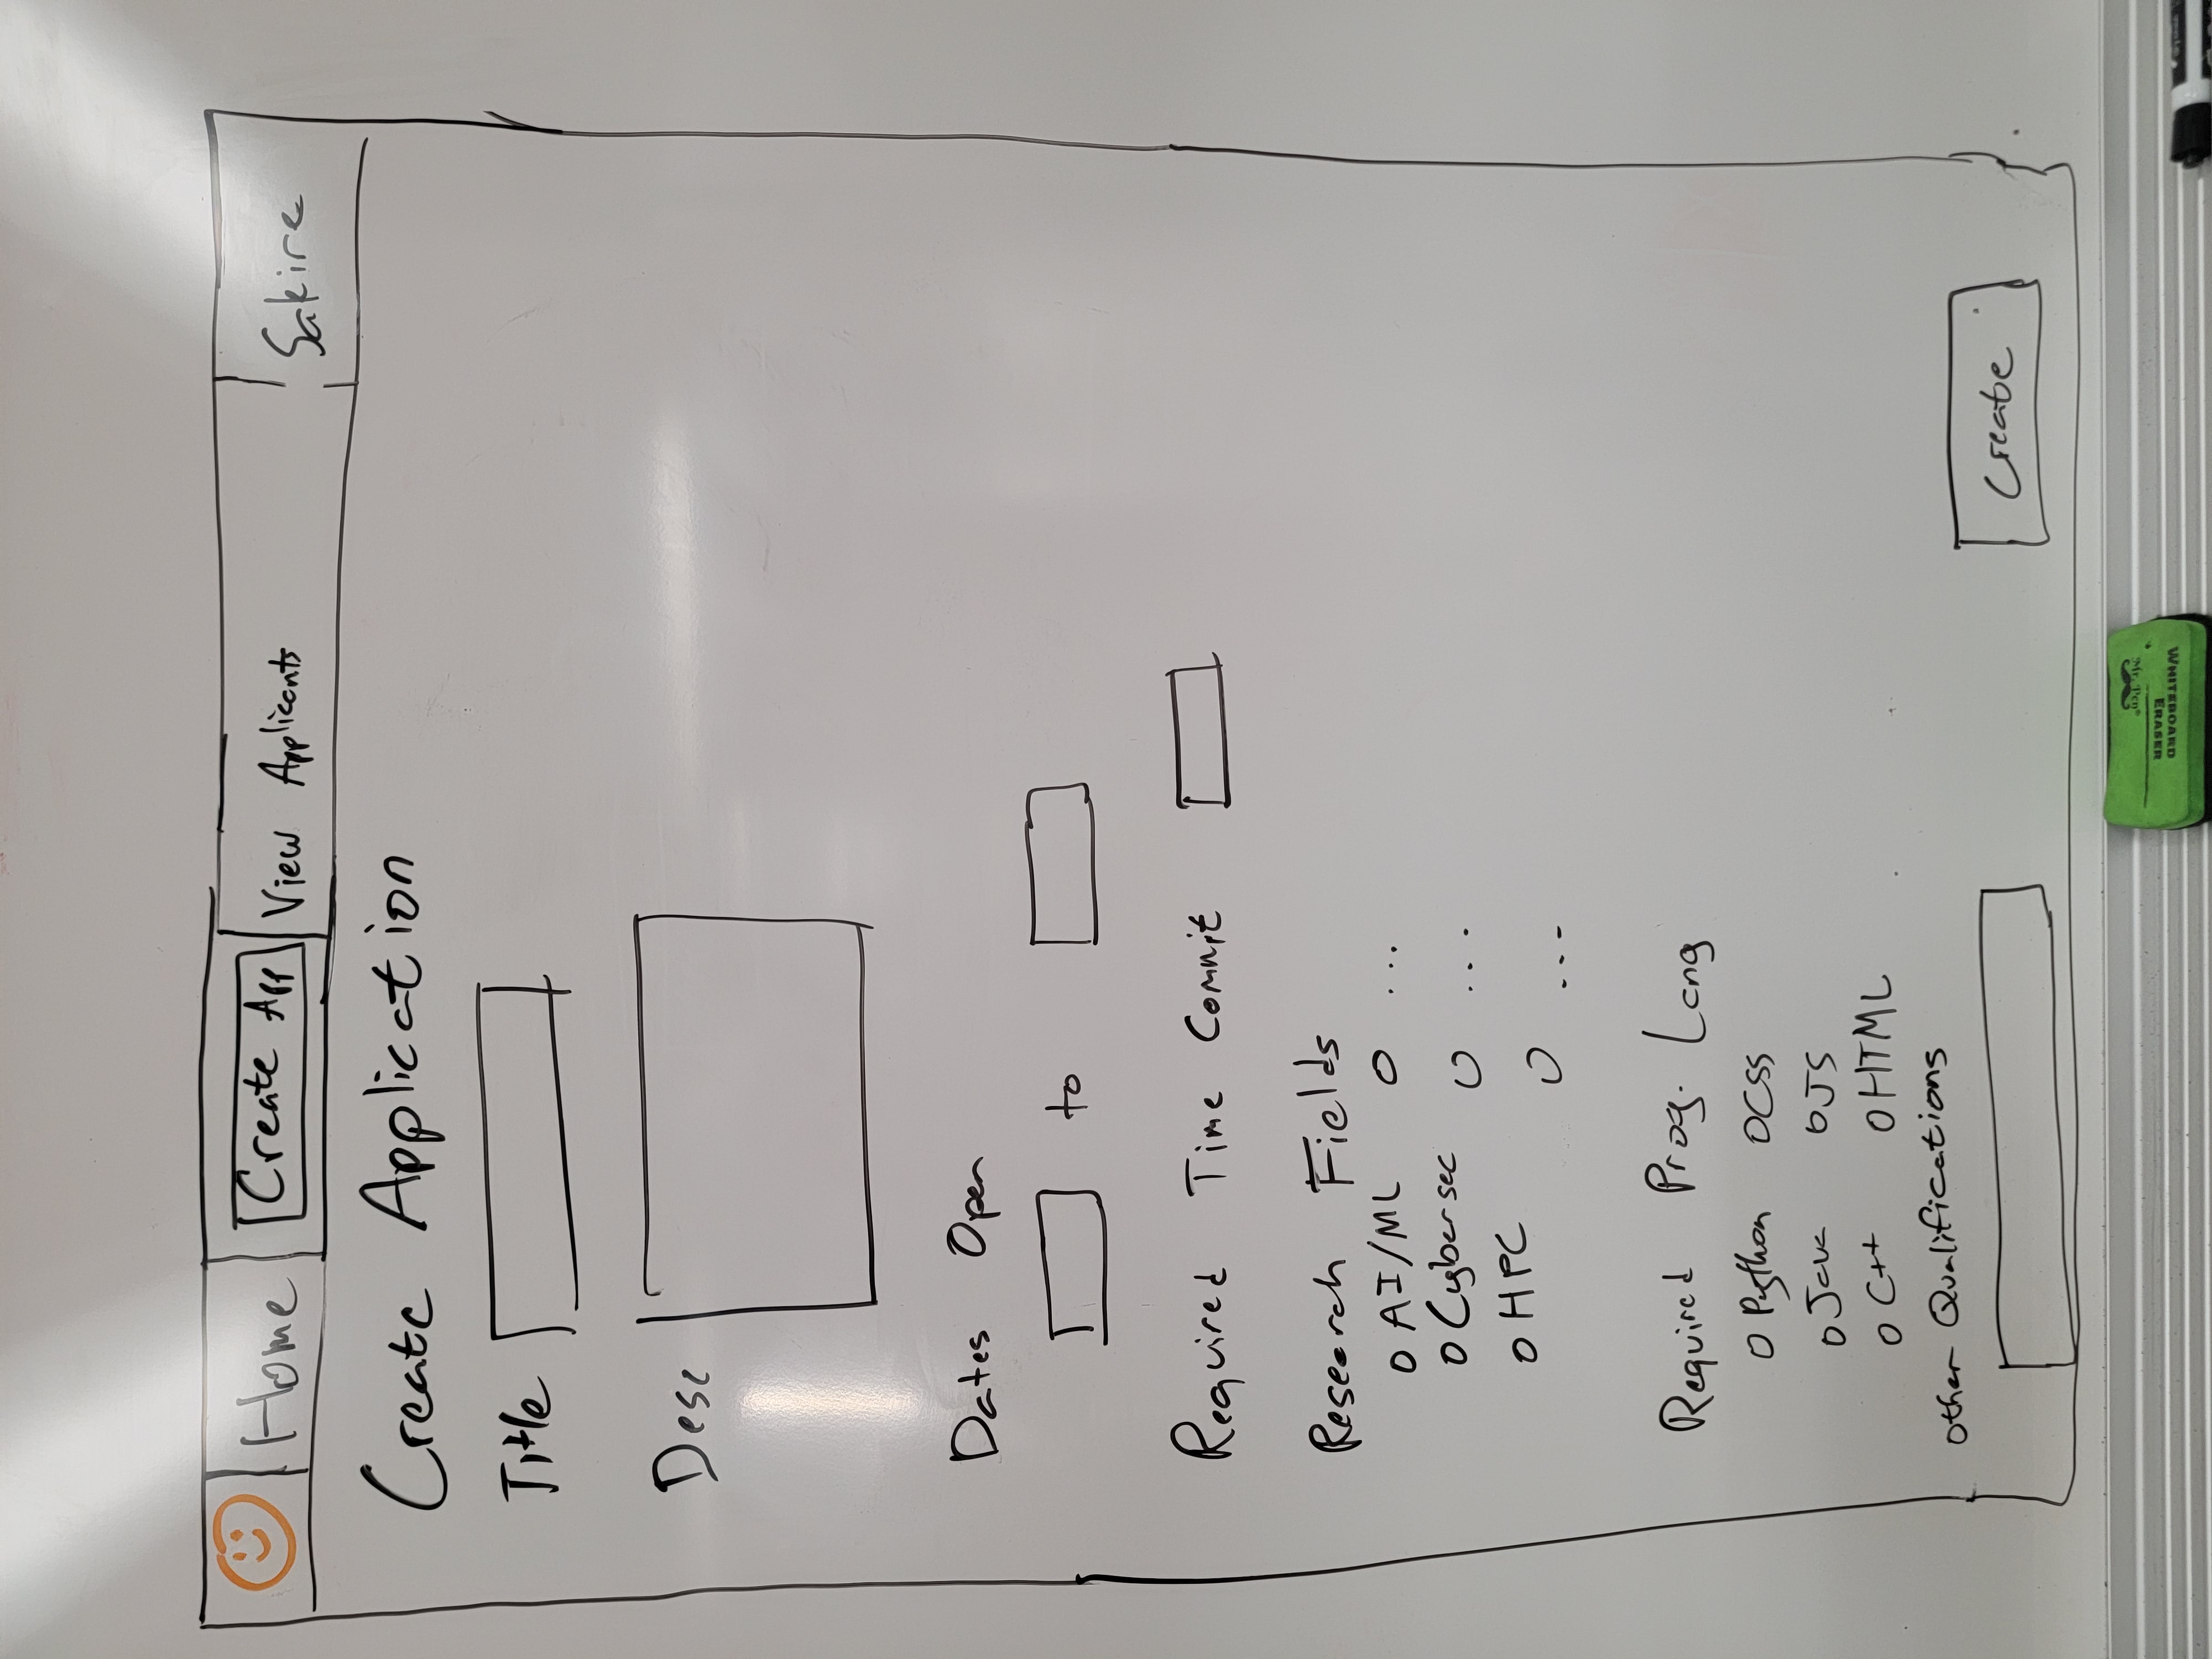 Home Create App View Applicants Sakire
Create Application
Title
Desc
Dates Open
to
Required Time Commit
Research Fields
AI/ML ...
Cybersec ...
HPC ...
Required Prog. Lang
Python CSS
Java JS
C++ HTML
Other Qualifications
Create
Mr. Pen®
WHITEBOARD
ERASER